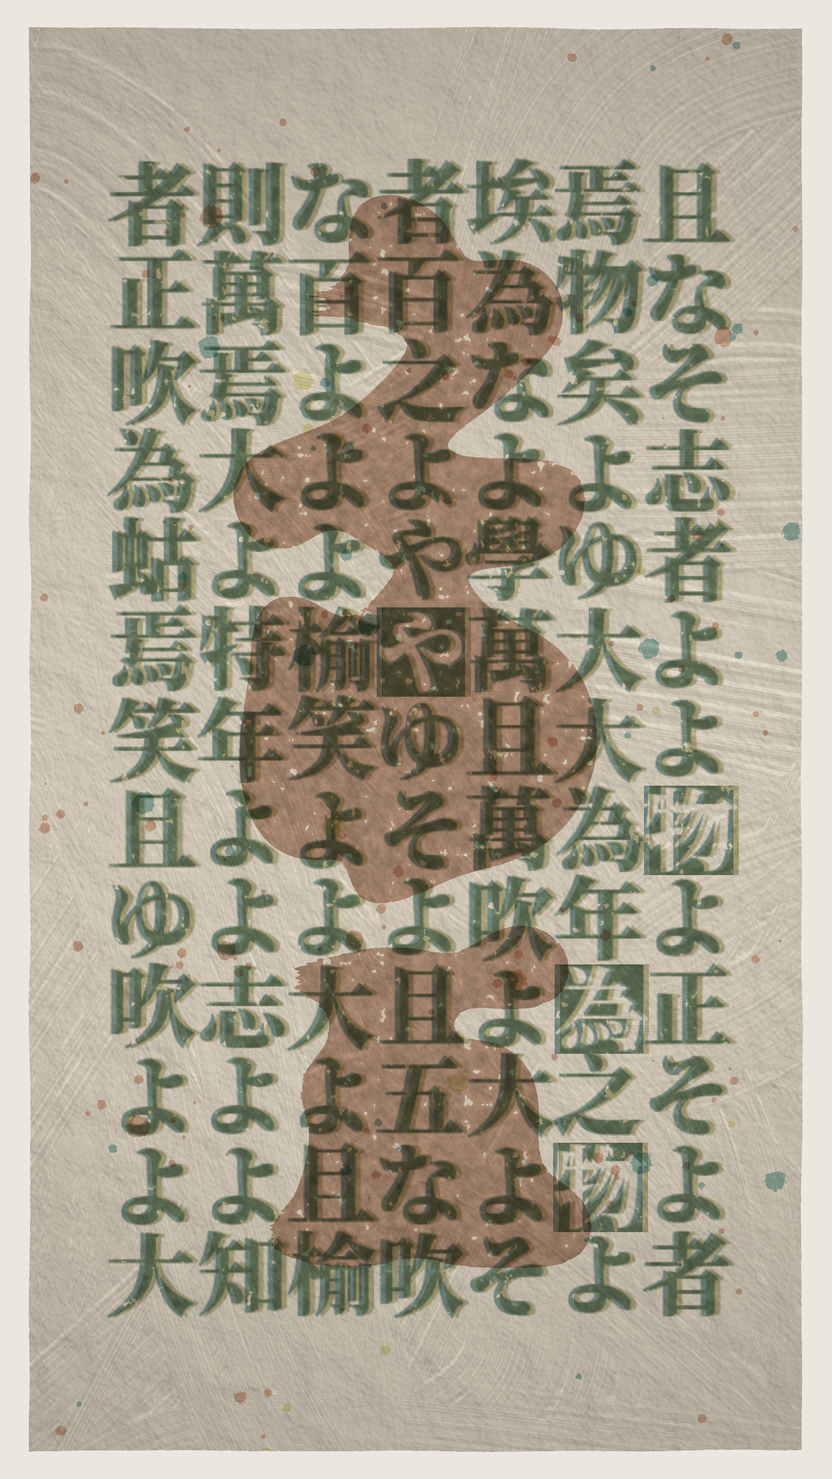 且なそ志者よよ物よ正そよ者
焉物矣よゆ大大為年為之物よ
埃為なよ學萬且萬吹よ大よそ
者百之よややゆそよ且五な吹
な百よよよ榆笑よよ大よ且榆
則萬焉大よ特年よよ志よよ知
者正吹為蛄焉笑且ゆ吹よよ大